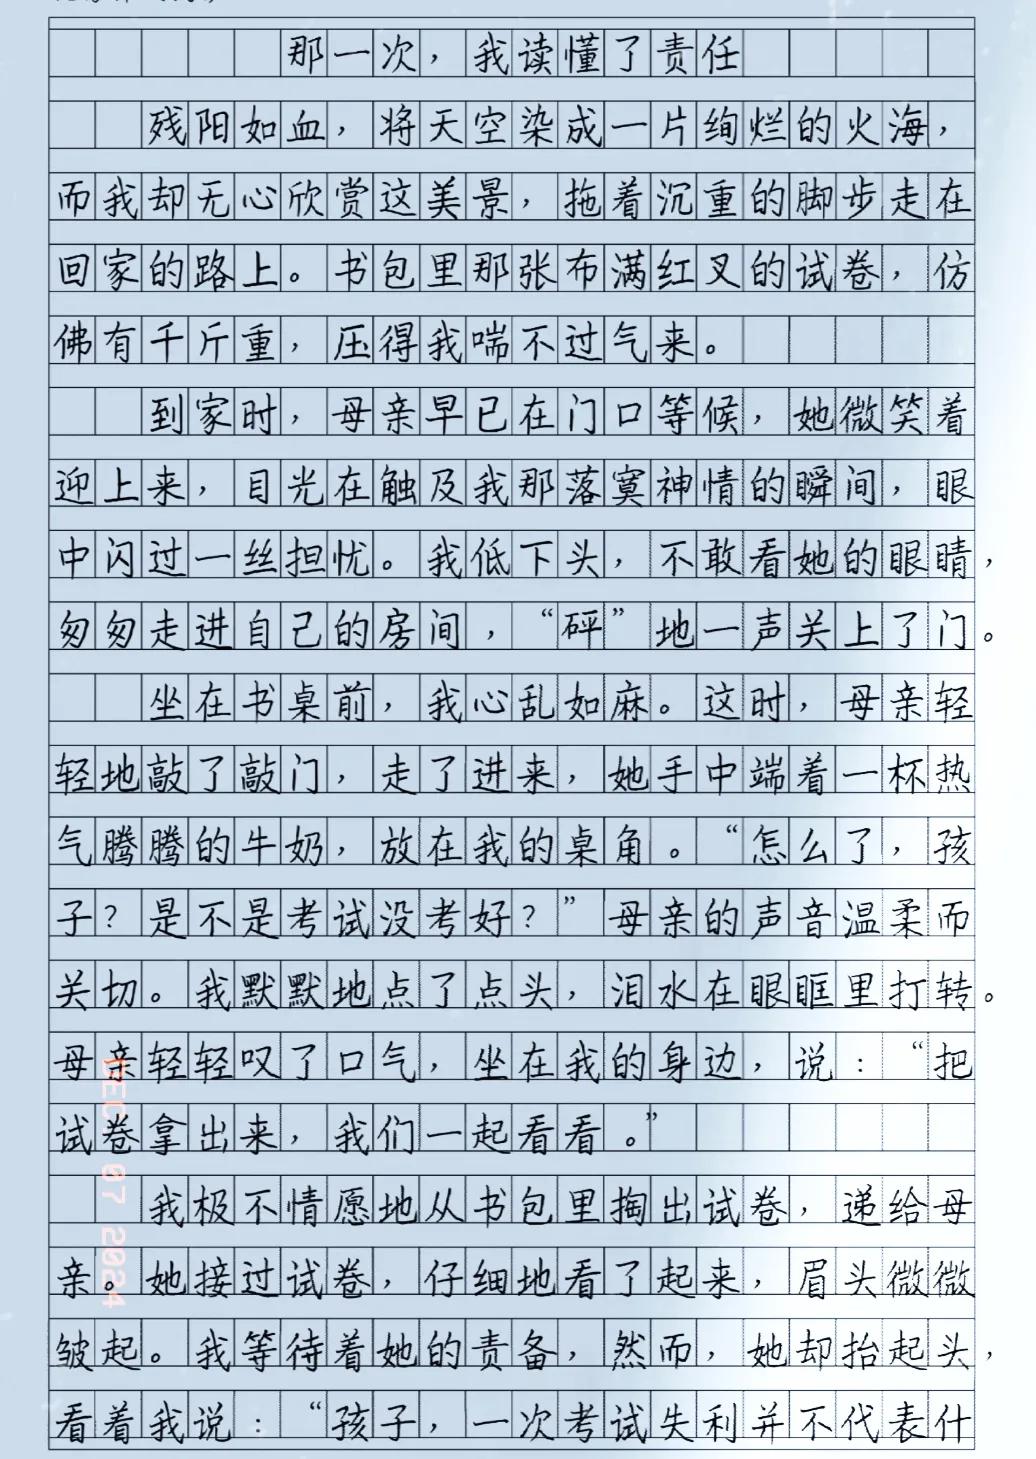 那一次，我读懂了责任
残阳如血，将天空染成一片绚烂的火海，
而我却无心欣赏这美景，拖着沉重的脚步走在
回家的路上。书包里那张布满红叉的试卷，仿
佛有千斤重，压得我喘不过气来。
到家时，母亲早已在门口等候，她微笑着
迎上来，目光在触及我那落寞神情的瞬间，眼
中闪过一丝担忧。我低下头，不敢看她的眼睛，
匆匆走进自己的房间，“砰”地一声关上了门。
坐在书桌前，我心乱如麻。这时，母亲轻
轻地敲了敲门，走了进来，她手中端着一杯热
气腾腾的牛奶，放在我的桌角。“怎么了，孩
子？是不是考试没考好？”母亲的声音温柔而
关切。我默默地点了点头，泪水在眼眶里打转。
母亲轻轻叹了口气，坐在我的身边，说：“把
试卷拿出来，我们一起看看。”
我极不情愿地从书包里掏出试卷，递给母
亲。她接过试卷，仔细地看了起来，眉头微微
皱起。我等待着她的责备，然而，她却抬起头，
看着我说：“孩子，一次考试失利并不代表什
DEC. 07 2024